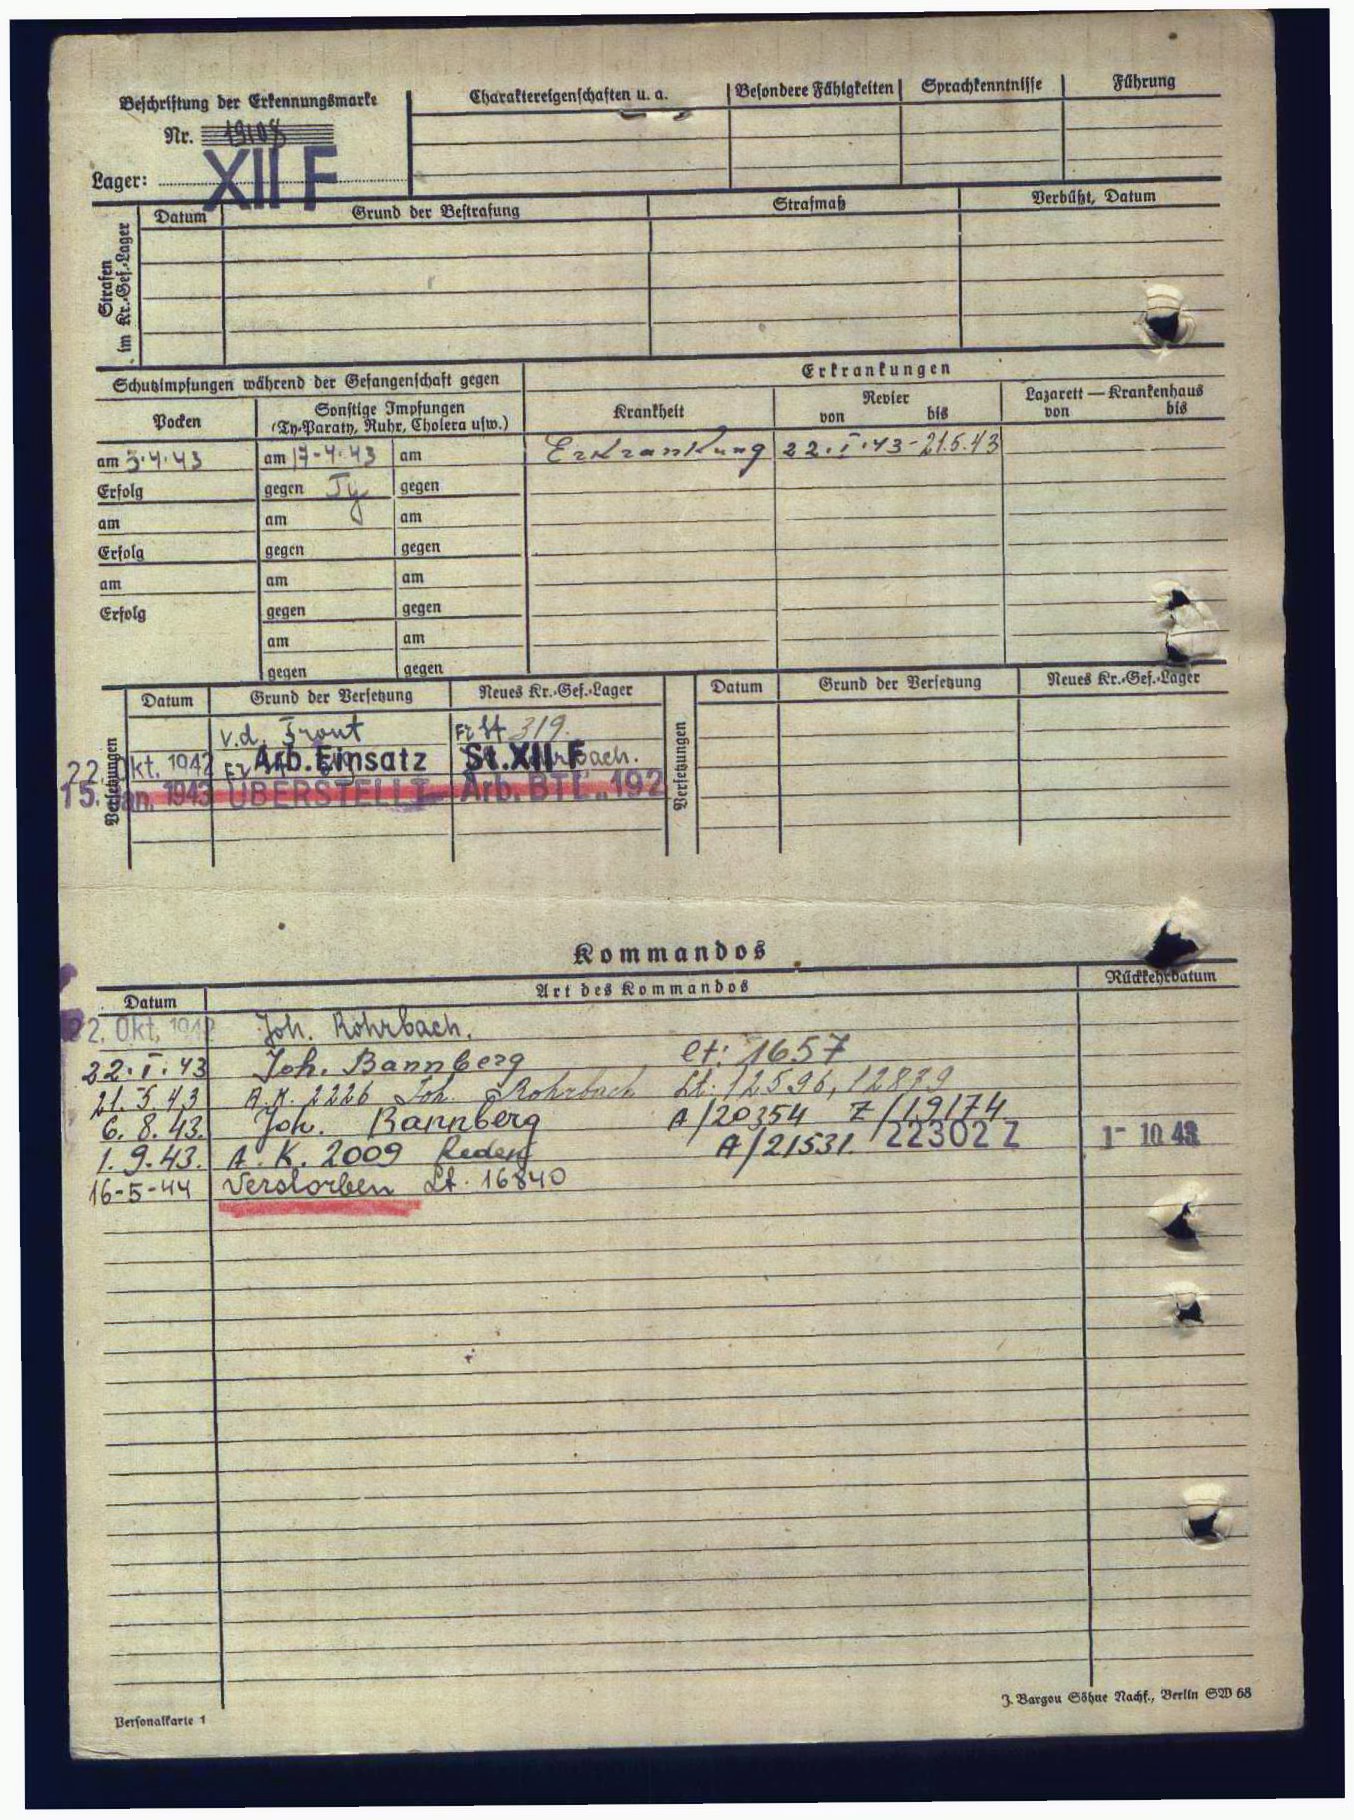 Beschriftung der Erkennungsmarke
Nr. 19108
Lager: XII F
Charaktereigenschaften u. a. Besondere Fähigkeiten Sprachkenntnisse Führung
Strafen im Kr.-Gef.-Lager
Datum Grund der Bestrafung Strafmaß Verbüßt, Datum
Schutzimpfungen während der Gefangenschaft gegen Erkrankungen
Pocken Sonstige Impfungen (Ty-Paraty, Ruhr, Cholera usw.) Krankheit Revier von bis Lazarett — Krankenhaus von bis
am 5.4.43 am 17-4.43 am Erkrankung 22.I.43-21.5.43
Erfolg gegen Ty gegen
am am am
Erfolg gegen gegen
am am am
Erfolg gegen gegen
am am
gegen gegen
Versetzungen
Datum Grund der Versetzung Neues Kr.-Gef.-Lager Versetzungen Datum Grund der Versetzung Neues Kr.-Gef.-Lager
v.d. Front 319.
22. Okt. 1942 Arb. Einsatz St. XII F
15. Jan. 1943 ÜBERSTELLT Arb. BTL. 192
Kommandos
Datum Art des Kommandos Rückkehrdatum
22. Okt. 1942 Joh. Rohrbach.
22.I.43 Joh. Bannberg Lt: 1657
21.5.43 A.K. 2226 Joh. Rohrbach Lt. 12596, 12879
6.8.43. Joh. Bannberg A/20354 Z/19174
1.9.43. A.K. 2009 Reden A/21531. 22302 Z 1- 10 43
16-5-44 Verstorben Lt. 16840
Personalkarte 1
J. Bargou Söhne Nachf., Berlin SW 68